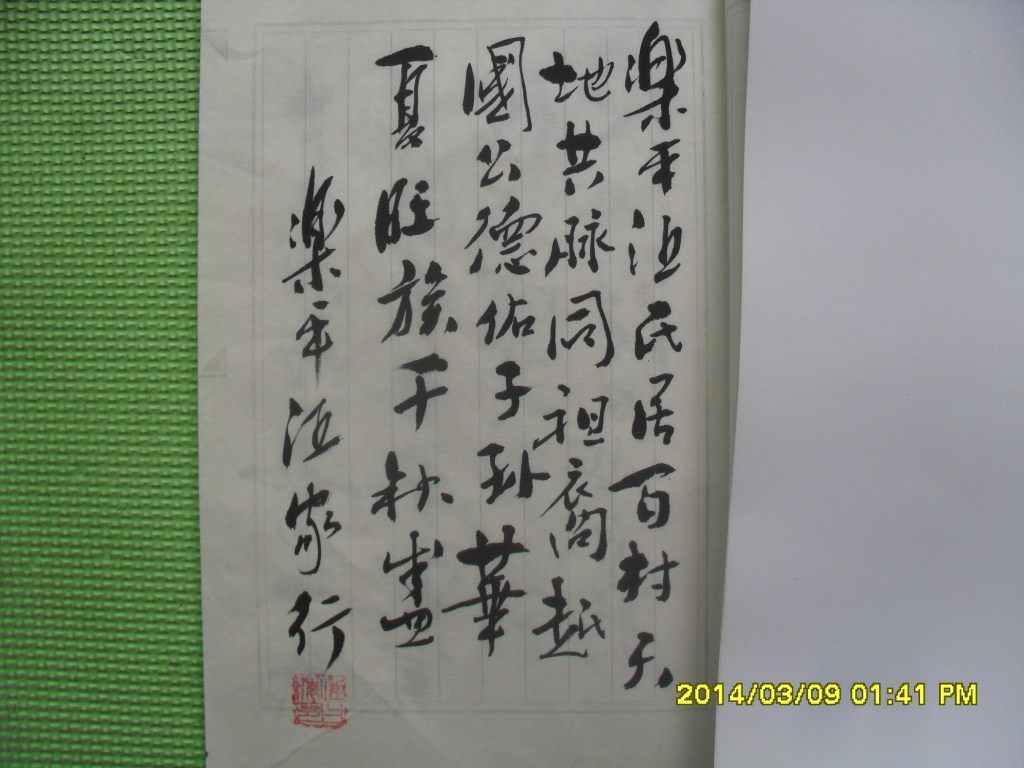 樂平汪氏居百村天
地共脉同祖裔越
國公德佑子孙華
夏旺族千秋盛
樂平汪家行
2014/03/09 01:41 PM